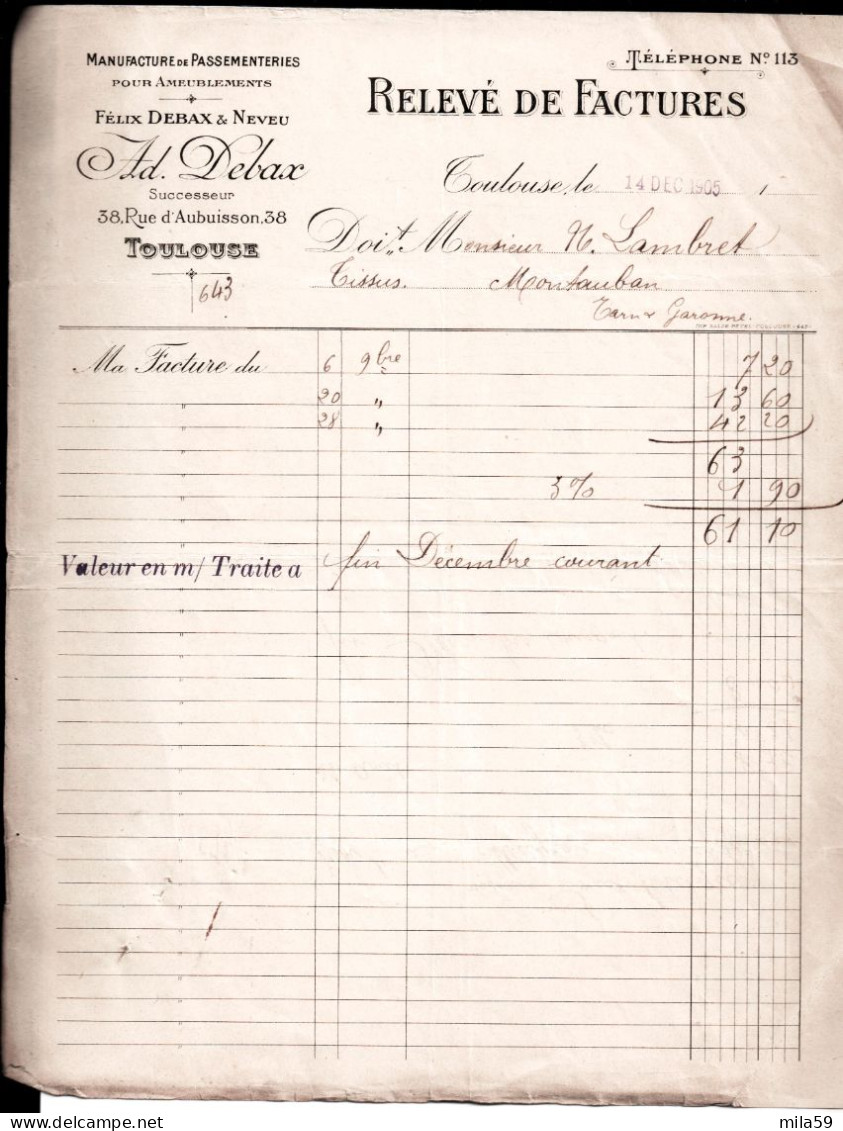 MANUFACTURE DE PASSEMENTERIES
POUR AMEUBLEMENTS
FÉLIX DEBAX & NEVEU
Ad. Debax
Successeur
38, Rue d'Aubuisson, 38
TOULOUSE
643
TÉLÉPHONE No 113
RELEVÉ DE FACTURES
Toulouse, le 14 DEC 1905 1
Doit Monsieur N. Lambret
Tissus. Montauban
Tarn & Garonne.
Ma Facture du 6 9bre 7 20
" 20 " 13 60
" 28 " 42 20
63
3% 1 90
61 10
Valeur en m/ Traite a fin Décembre courant
mila59